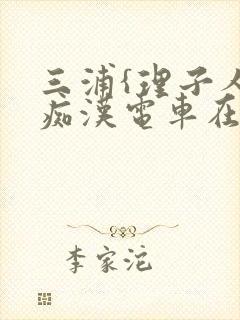 三浦{理子人
痴漢電車在
李家沱